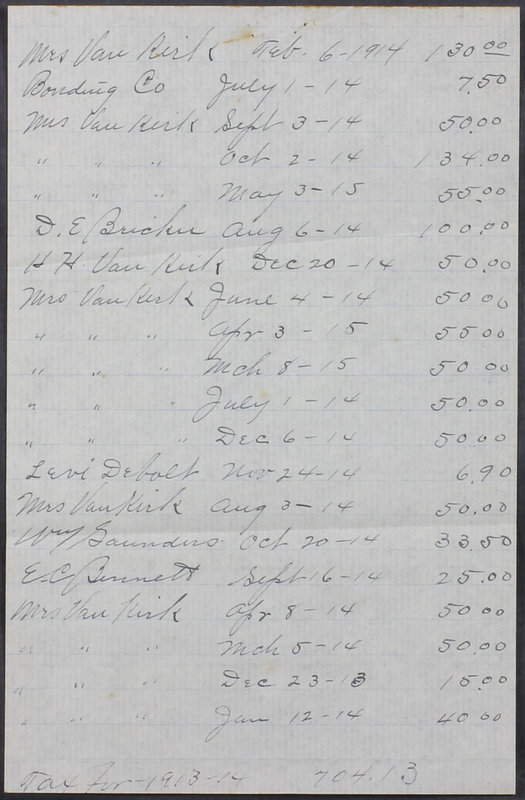 Mrs Van Kirk Feb. 6-1914 130.00
Bonding Co July 1-14 7.50
Mrs Van Kirk Sept 3-14 50.00
" " " Oct 2-14 134.00
" " " May 3-15 55.00
D. E Bricker Aug 6-14 100.00
H H. Van Kirk Dec 20-14 50.00
Mrs Van Kirk June 4-14 50 00
" " " Apr 3-15 55 00
" " " Mch 8-15 50 00
" " " July 1-14 50.00
" " " Dec 6-14 50.00
Levi Debolt Nov 24-14 6.90
Mrs Van Kirk Aug 3-14 50.00
Saunders Oct 20-14 33.50
E.C. Bennett Sept 16-14 25.00
Mrs Van Kirk Apr 8-14 50 00
" " " Mch 5-14 50.00
" " " Dec 23-13 15.00
" " " Jan 12-14 40 00
Tax For-1913-14 704.13